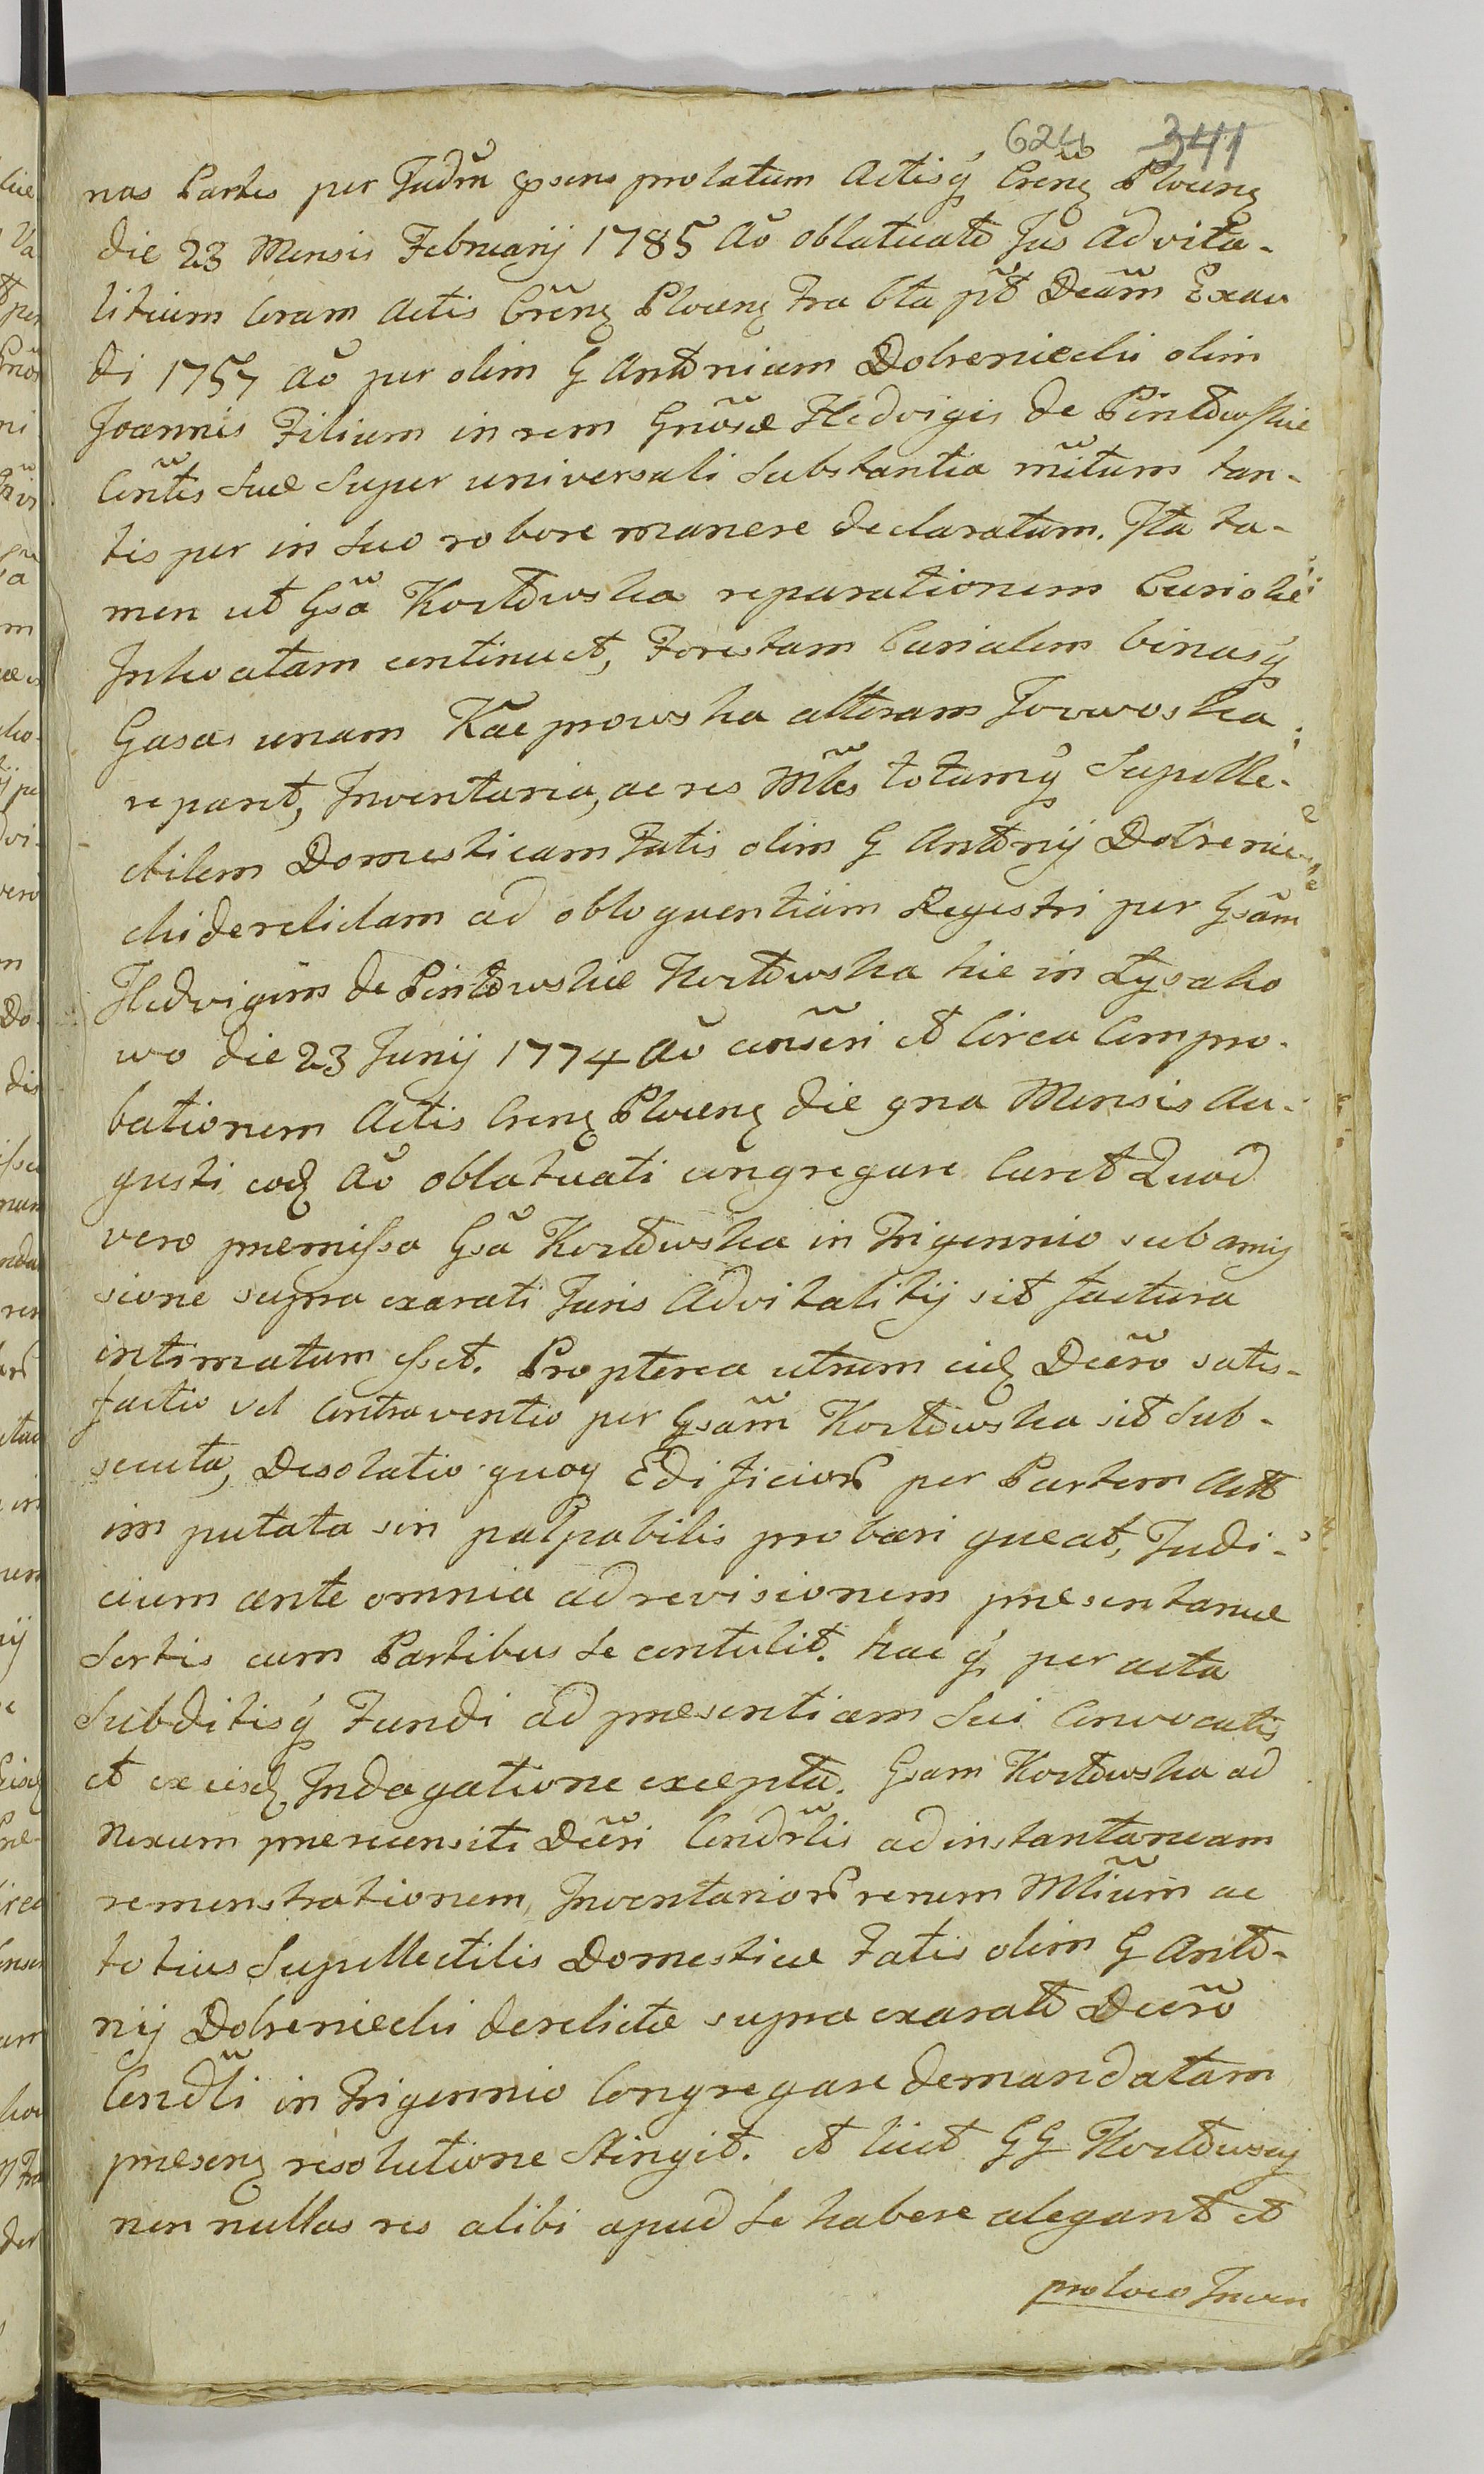 624 341
nas Partes per Judm psens prolatum Actisq Crenz Plocenz
die 23 Mensis Februarij 1785 Ao oblatuato Jus advita-
litium Coram Actis Crenz Plocenz fra 6ta pt Dcam Exau
di 1757 Ao per olim G Antonium Dobreniecki olim
Joannis Filium in rem Gnosæ Hedvigis de Pintowskie
Contis suæ super universali Substantia mitum tan-
tis per in suo robore manere declaratum. Ita ta-
men ut Gsa Kortowska reparationem Curiolæ
Inhoatam continuet, Forestam Curialem binasq
Casas unam Kacprowska alteram
reparet, Inventaria, ac res Mles totamq Supelle-
ctilem Domesticam Fatis olim G Antonij Dobrenie
cki derelictam ad obloquentiam Regestri per Gsam
Hedvigem de Pintowskie Kortowska hic in Łysako
wo die 23 Junij 1774 Ao conscri et Circa Compro-
bationem Actis Crenz Plocenz die 9na Mensis Au-
gusti eod Ao oblatuati congregare Curet Quod
vero præmissa Gsa Kortowska in Trigennio sub amis
sione supra exarati Juris Advitalitij sit factura
intimatum esset. Propterea utrum eid Dcero satis-
factio vel Contraventio per Gsam Kortowska sit Sub-
secuta, Desolatio quoq Edificior per Partem Actt
imputata sin palpabilis probari queat, Judi-
cium ante omnia ad revisionem præsentaneæ
Sortis cum Partibus se contulit. hac q peracta
Subditisq Fundi ad præsentiam Sui Convocatis
et ex eisd Indagatione excepta. Gsam Kortowska ad
Nexum prærecensiti Dceri Condrlis ad instantaneam
remonstrationem, Inventarior rerum Mlium ac
totius Supellectilis Domesticæ Fatis olim G Anto-
nij Dobreniecki derelictæ supra exarato Dcero
Condli in Trigennio Congregare demandatam
præsenz resolutione Stingit. et licet GG Kortowscy
non nullas res alibi apud se habere alegant et
pro loco Inven